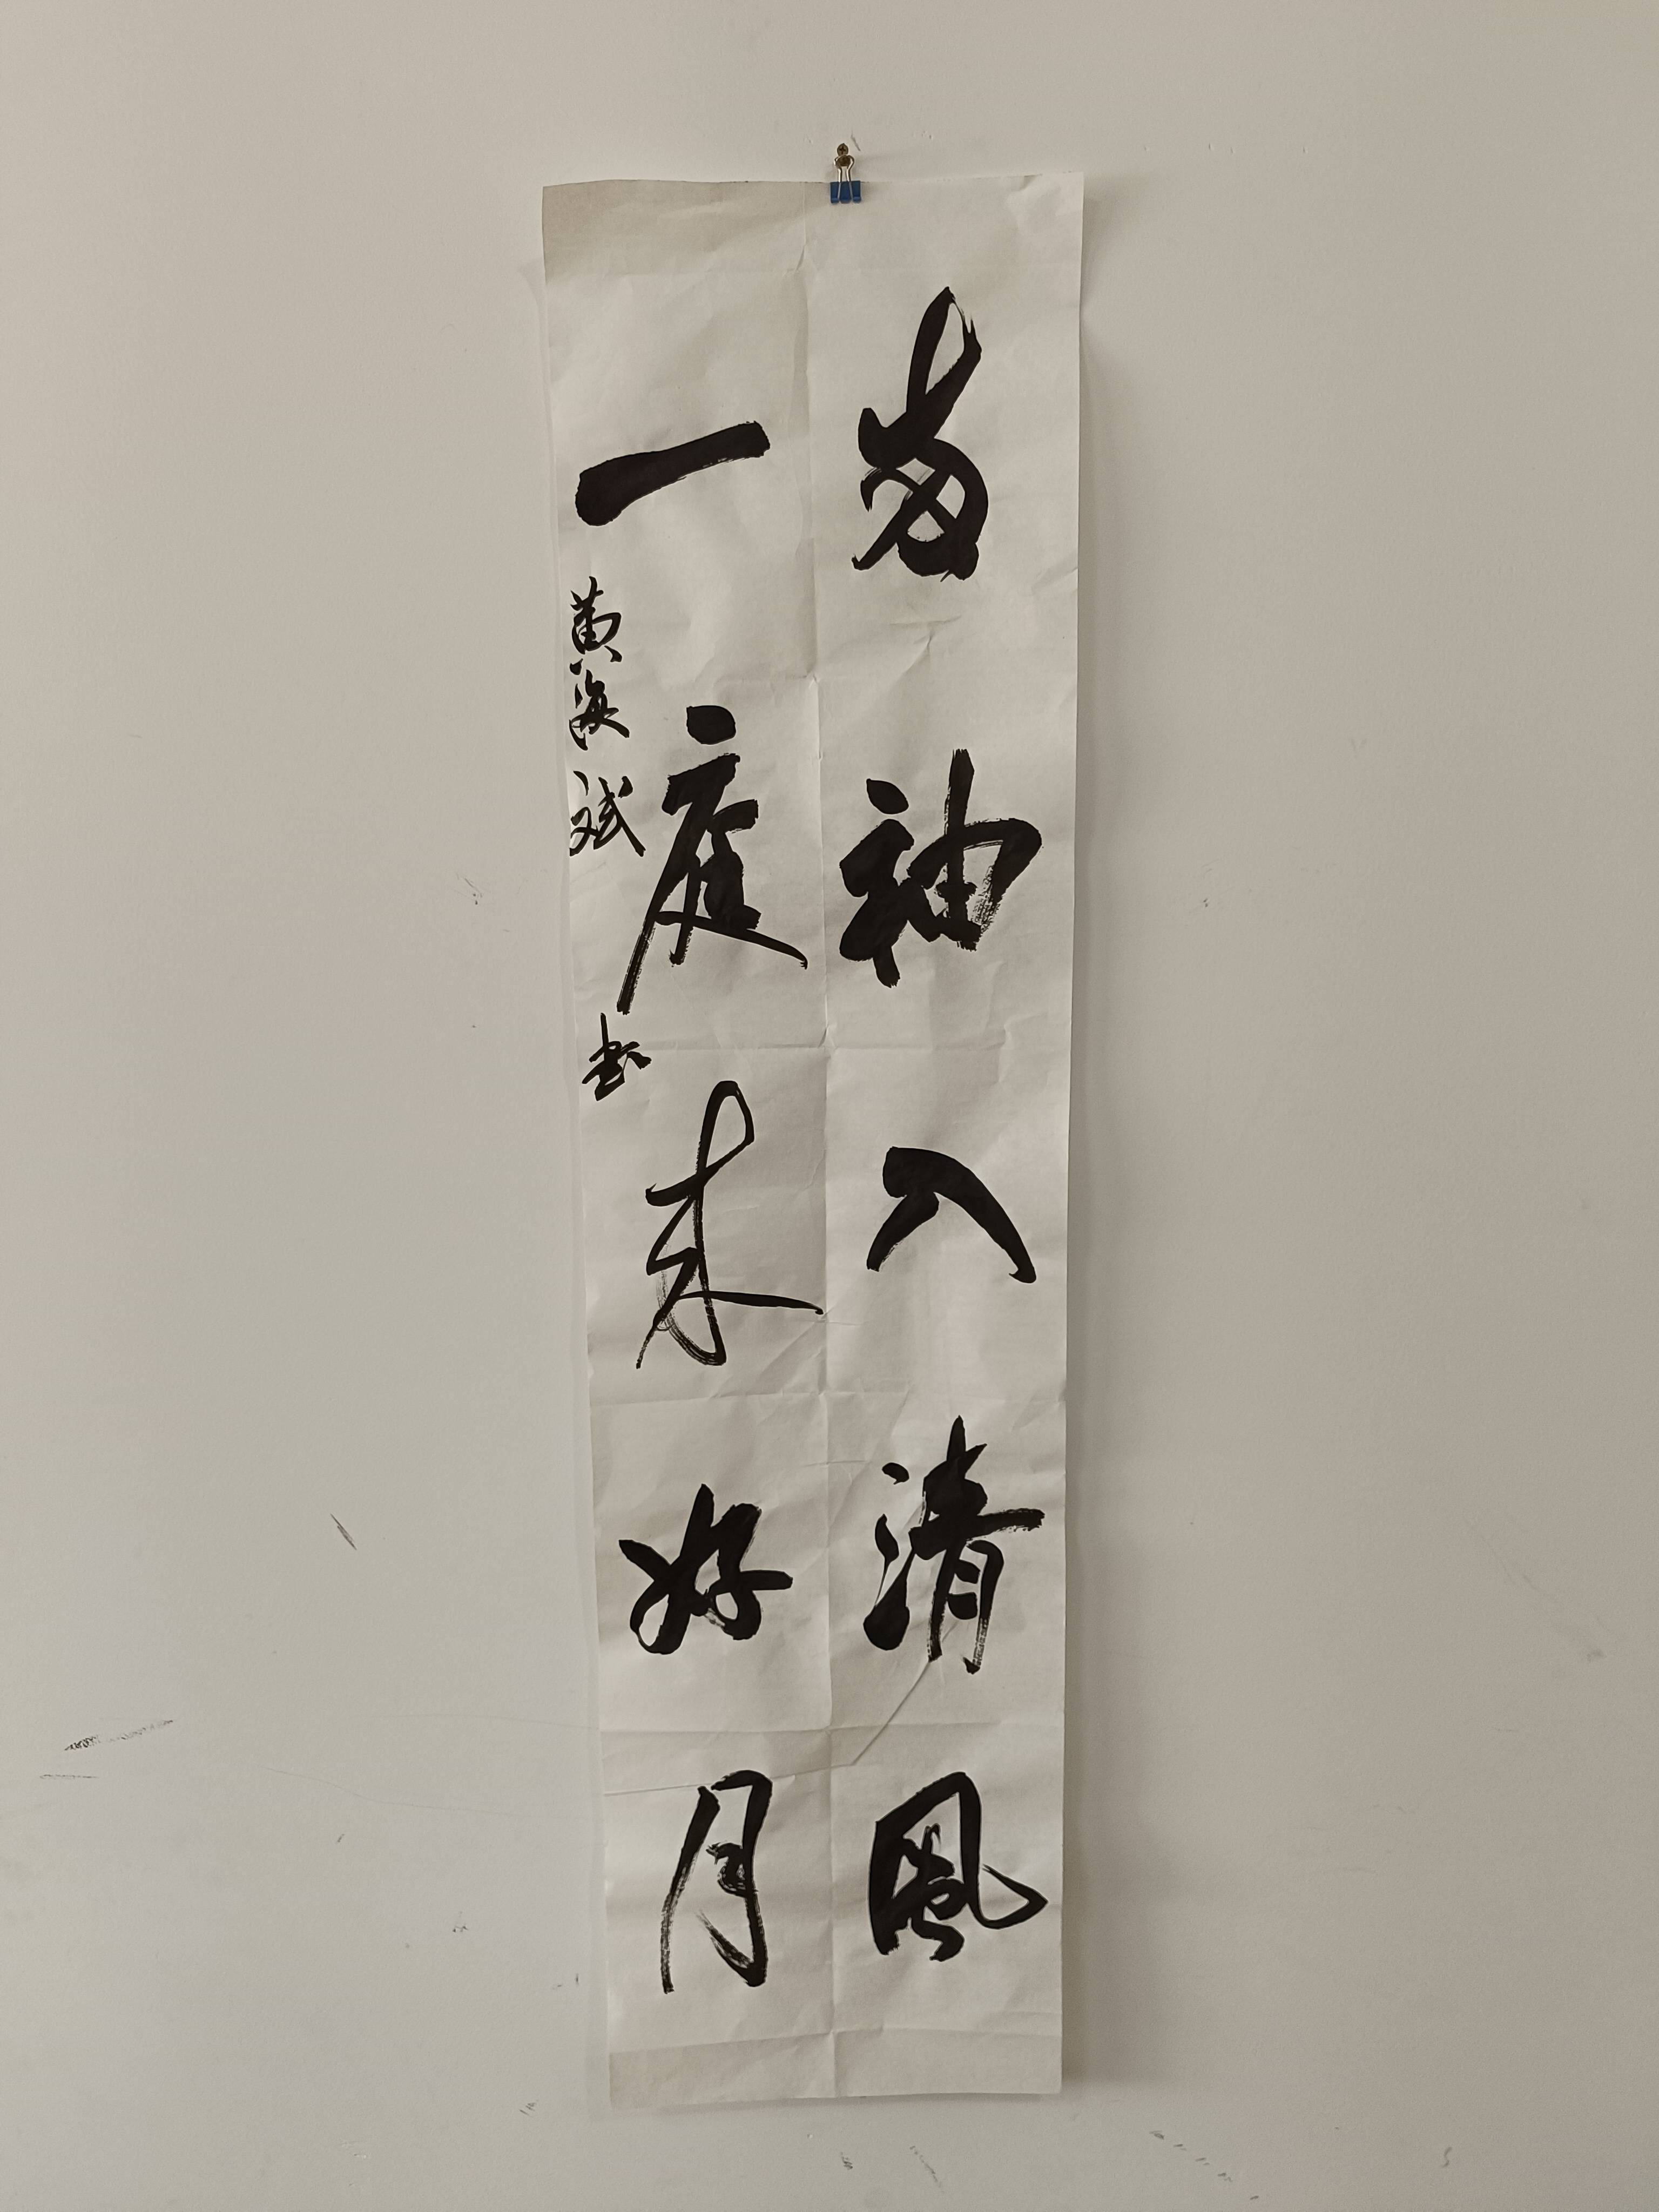 两袖入清風
一庭来好月
黄海斌书